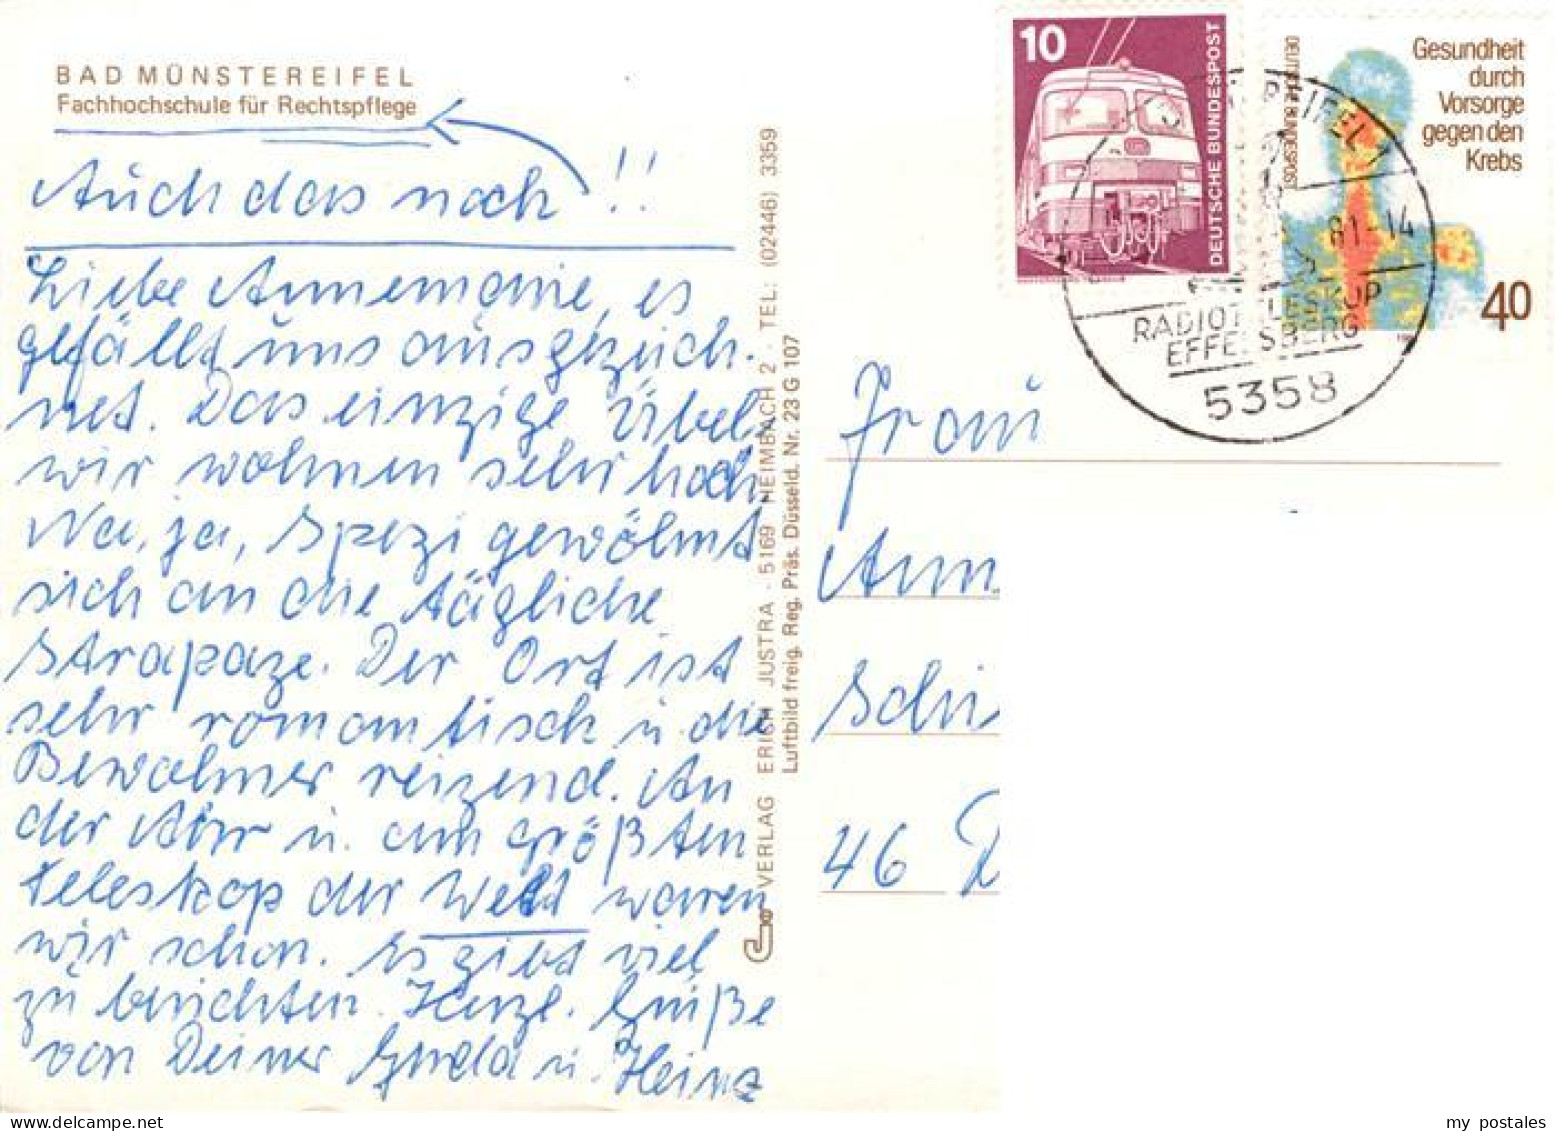 BAD MÜNSTEREIFEL
Fachhochschule für Rechtspflege
Auch das noch!!
Liebe Annemarie, es
gefällt uns ausgezeich-
net. Das einzige Übel,
wir wohnen sehr hoch.
Na, ja, Spezi gewöhnt
sich an die tägliche
Strapaze. Der Ort ist
sehr romantisch u. die
Bewohner reizend. An
der Ahr u. am größten
Teleskop der Welt waren
wir schon. Es gibt viel
zu berichten. Herzl. Grüße
von Deiner Gerda u. Heinz
VERLAG ERICH JUSTRA · 5169 HEIMBACH 2 · TEL: (02446) 3359
Luftbild freig. Reg. Präs. Düsseld. Nr. 23 G 107
10
DEUTSCHE BUNDESPOST
DEUTSCHE BUNDESPOST
Gesundheit
durch
Vorsorge
gegen den
Krebs
40
81-14
RADIOTELESKOP
EFFELSBERG
5358
Frau
Ann
46
my postales